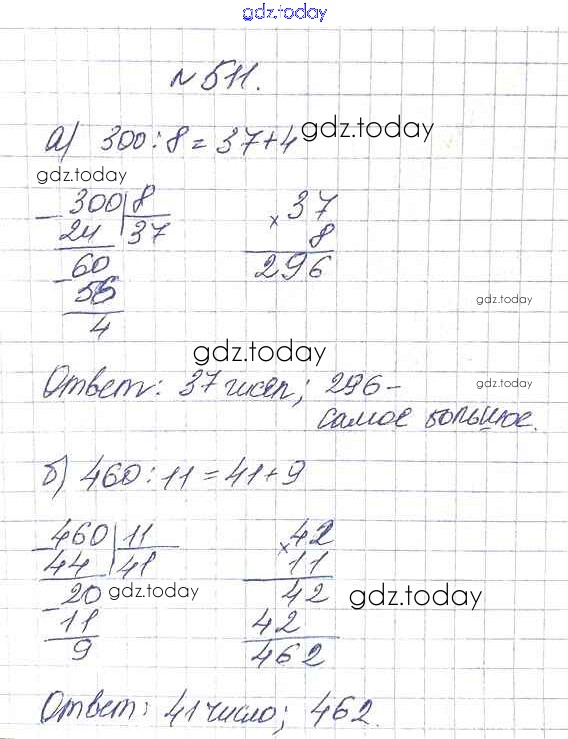 gdz.today
№ 511.
а) 300 : 8 = 37 + 4 gdz.today
gdz.today
300 | 8
24 | 37
60
56
4
× 37
8
296
gdz.today
gdz.today
Ответ: 37 чисел; 296 –
самое большое.
gdz.today
б) 460 : 11 = 41 + 9
460 | 11
44 | 41
20
11
9
gdz.today
× 42
11
42
42
462
gdz.today
Ответ: 41 число; 462.